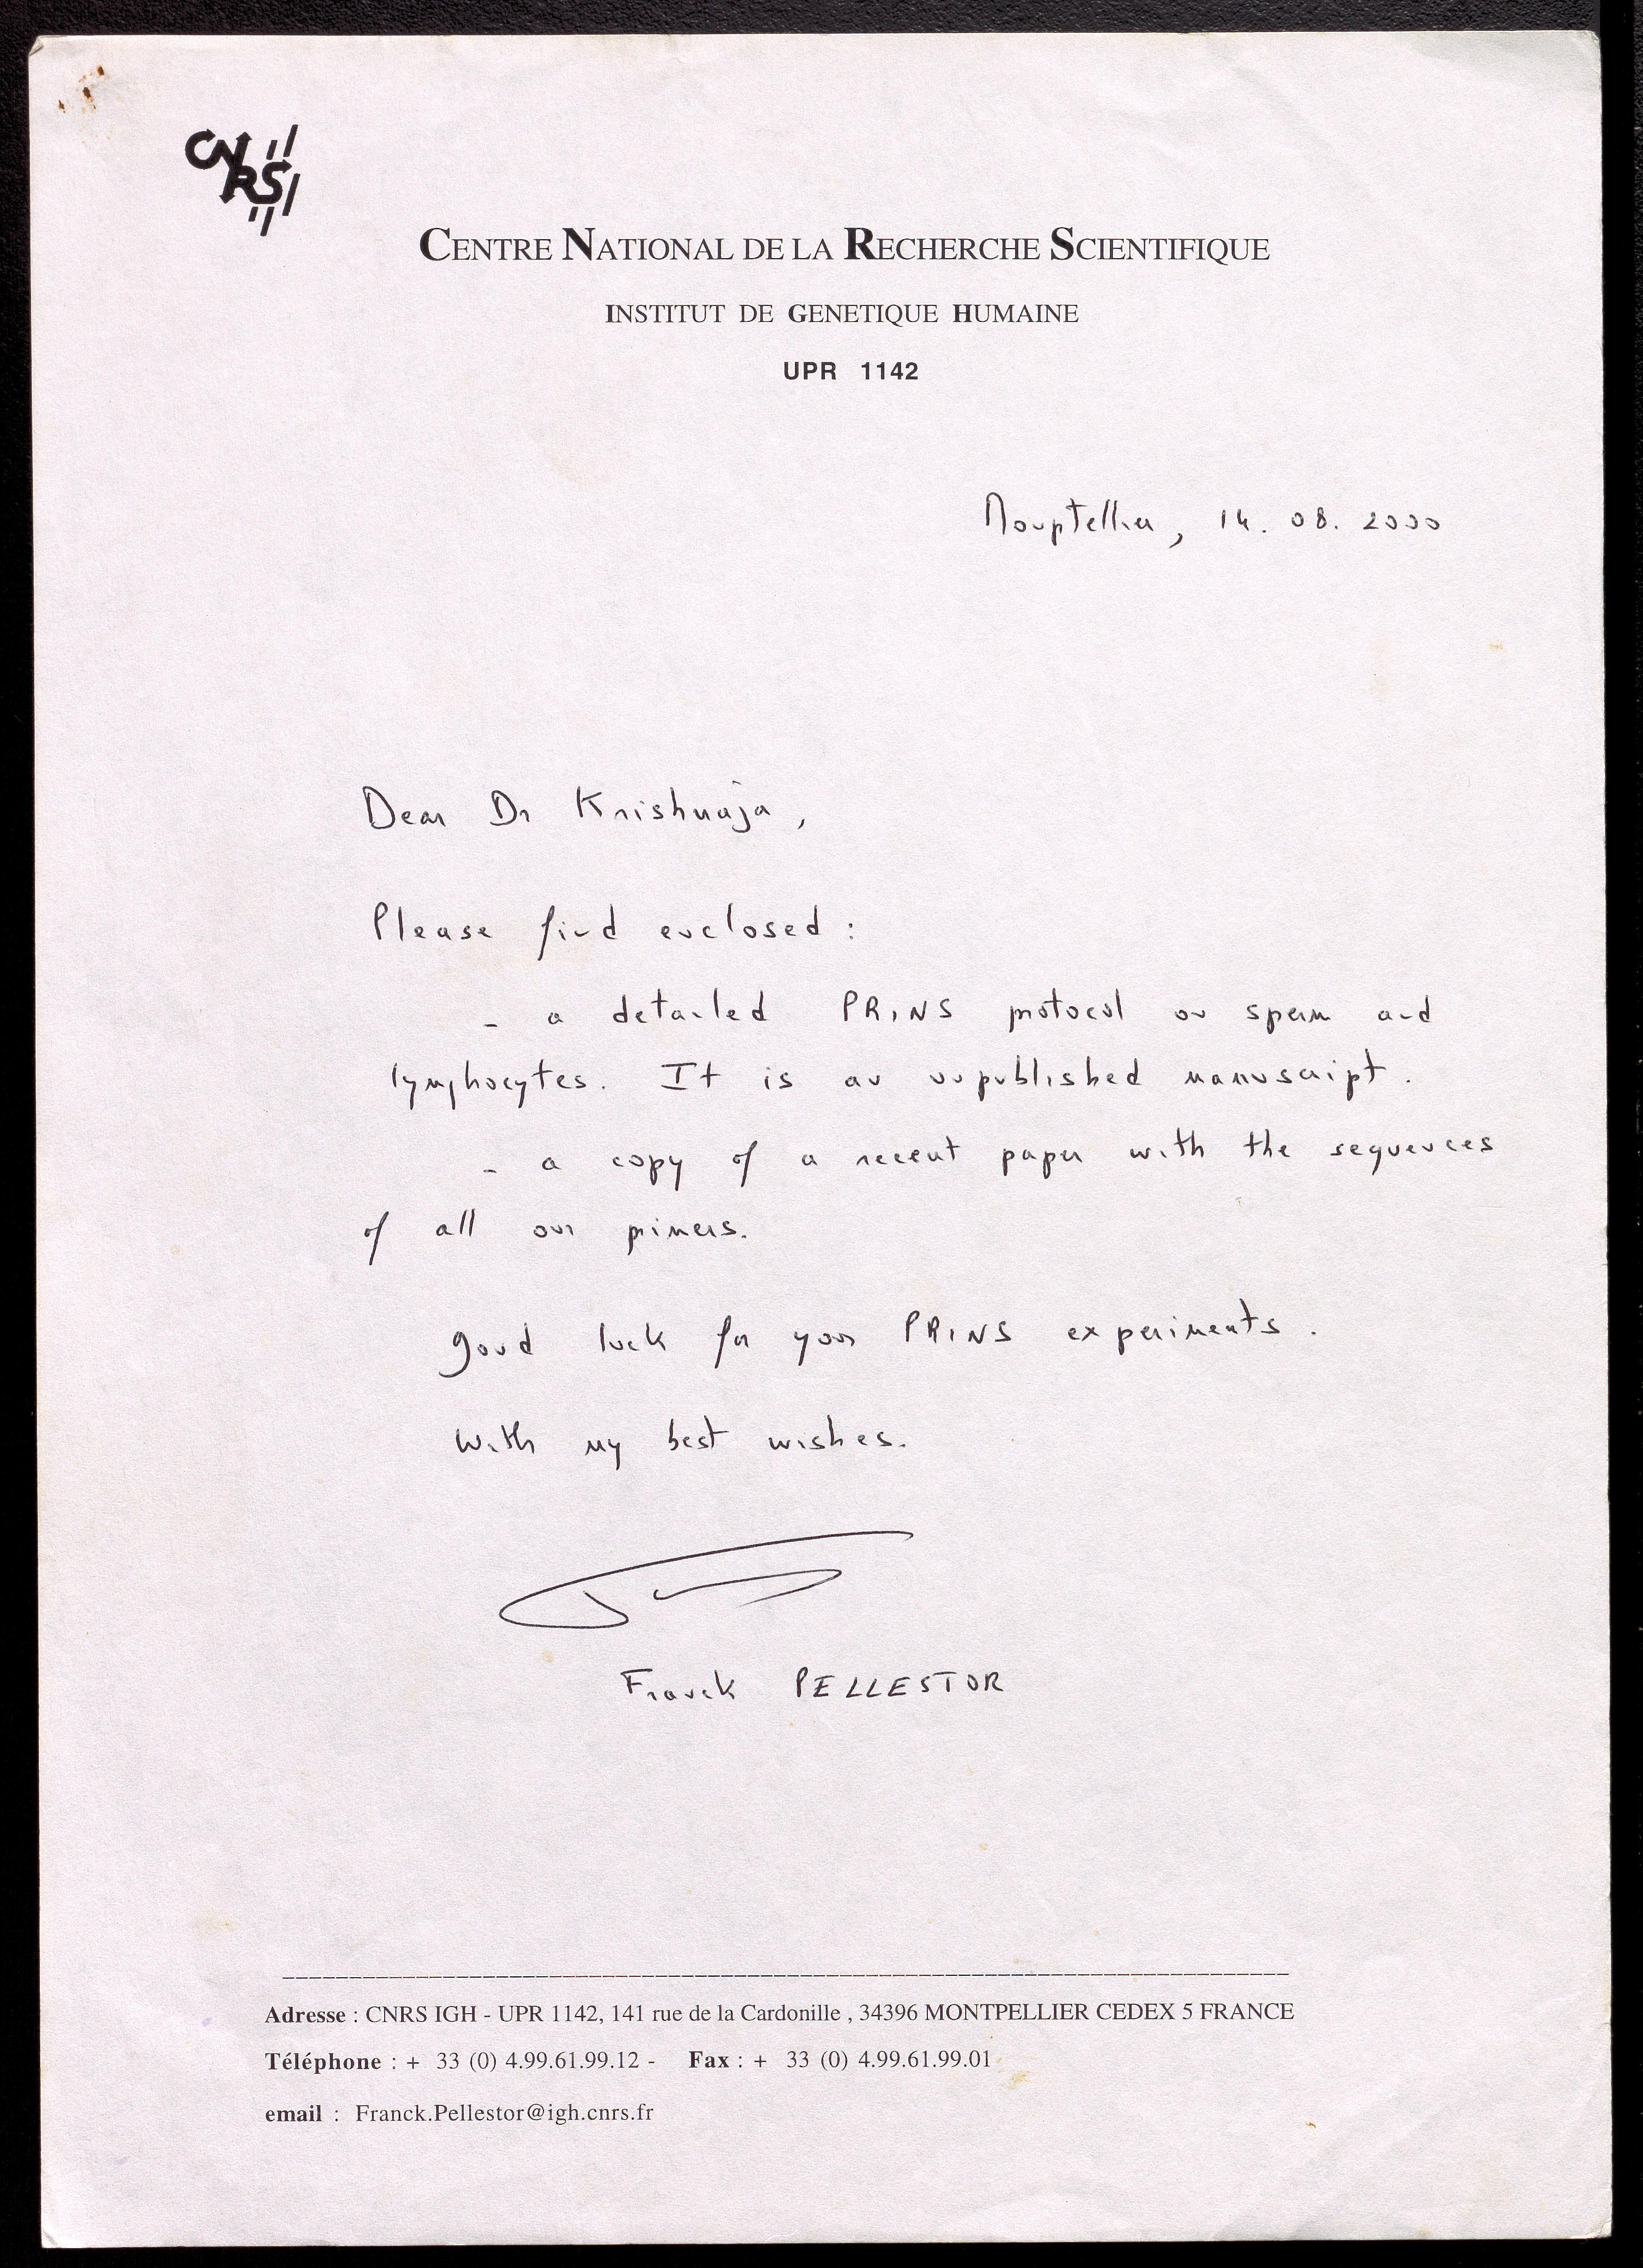 CNRS
CENTRE NATIONAL DE LA RECHERCHE SCIENTIFIQUE
INSTITUT DE GENETIQUE HUMAINE
UPR 1142
Montpellier, 14. 08. 2000
Dear Dr Krishnaja,
Please find enclosed :
- a detailed PRINS protocol on sperm and
lymphocytes. It is an unpublished manuscript.
- a copy of a recent paper with the sequences
of all our primers.
Good luck for your PRINS experiments.
With my best wishes.
Franck PELLESTOR
Adresse : CNRS IGH - UPR 1142, 141 rue de la Cardonille , 34396 MONTPELLIER CEDEX 5 FRANCE
Téléphone : + 33 (0) 4.99.61.99.12 - Fax : + 33 (0) 4.99.61.99.01
email : Franck.Pellestor@igh.cnrs.fr